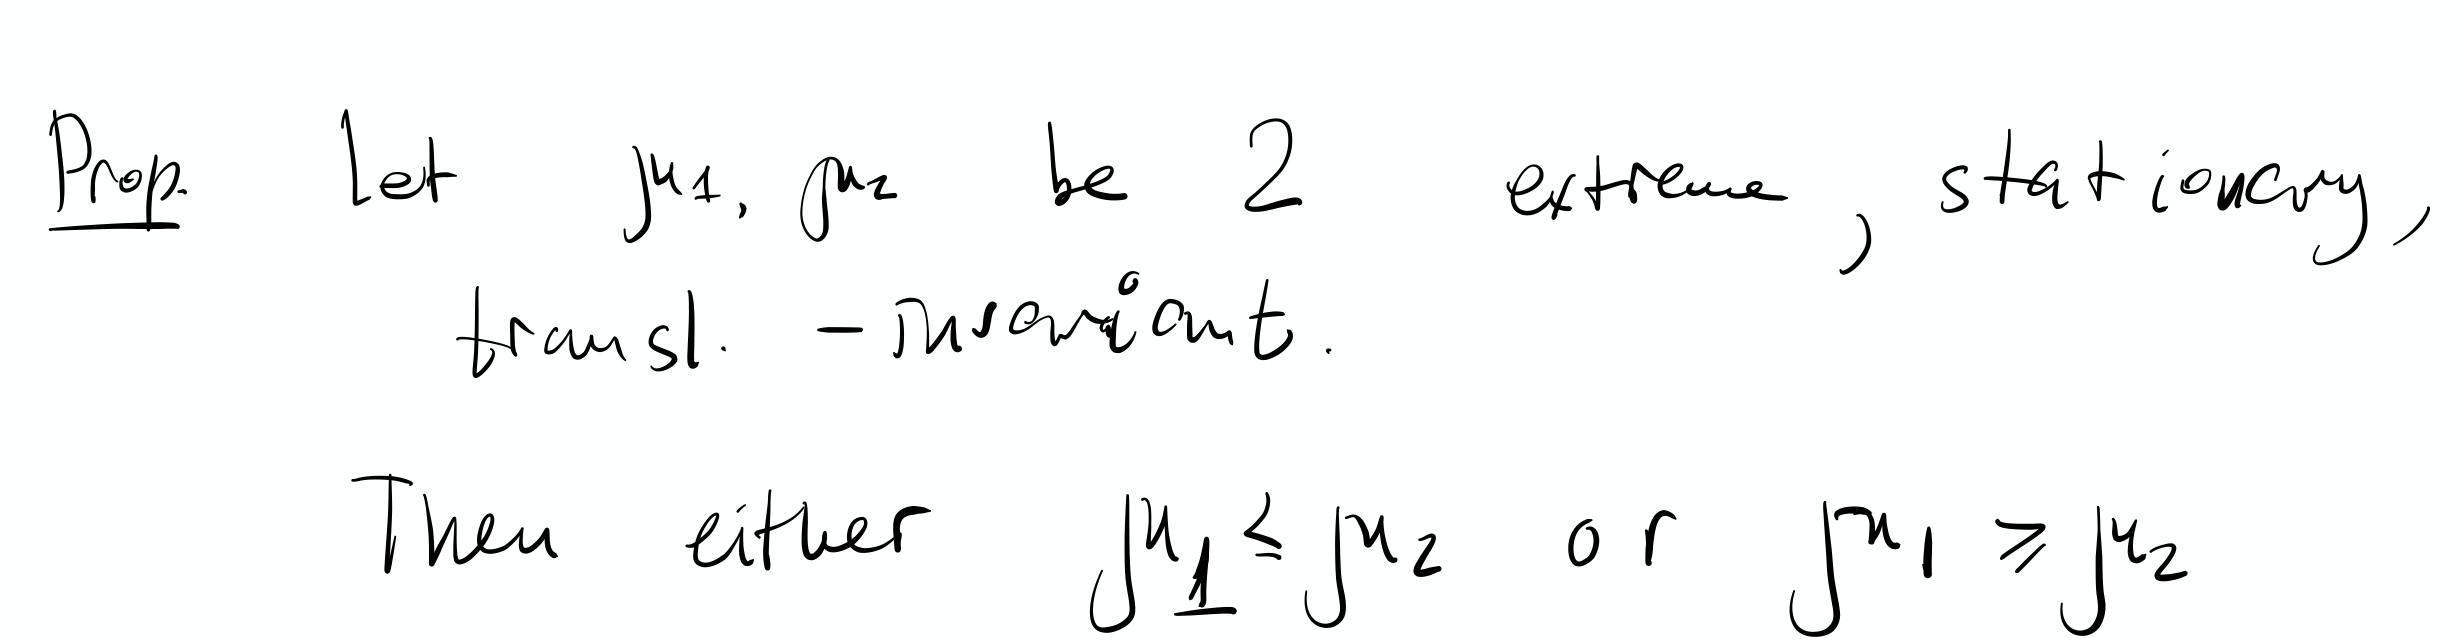 Prop. Let μ1, μ2 be 2 extreme, stationary,
transl. -invariant.
Then either μ1 ≤ μ2 or μ1 ≥ μ2